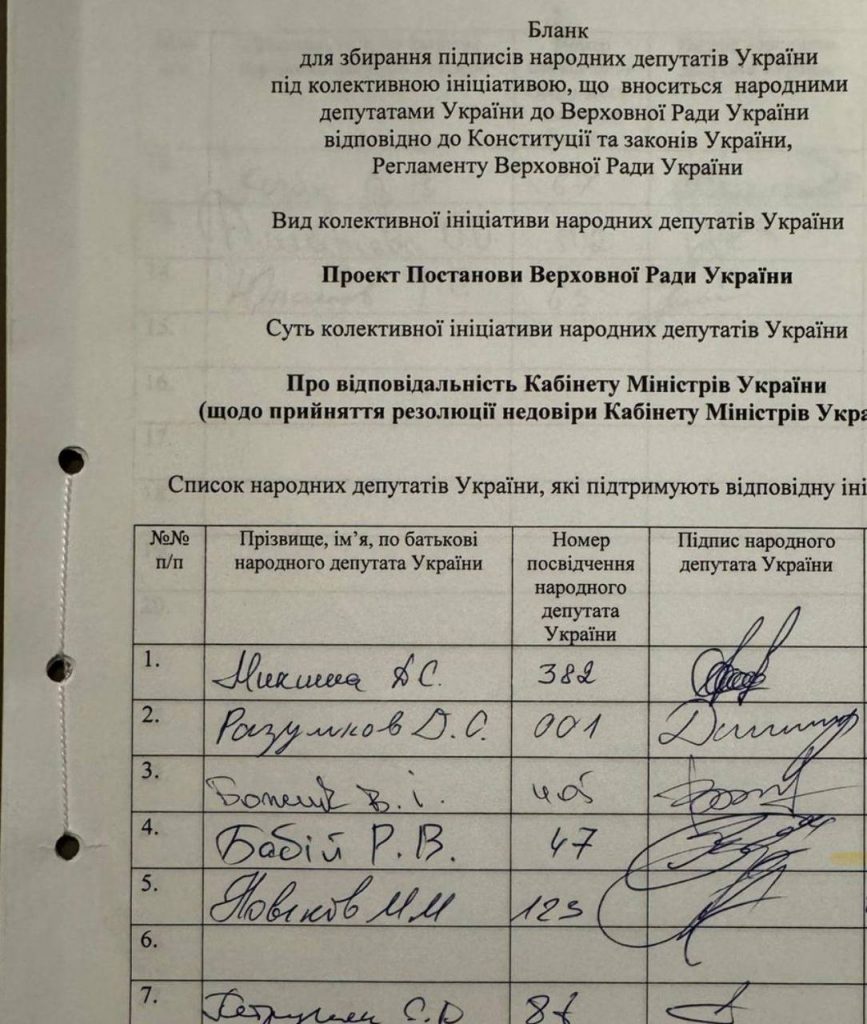 Бланк
для збирання підписів народних депутатів України
під колективною ініціативою, що вноситься народними
депутатами України до Верховної Ради України
відповідно до Конституції та законів України,
Регламенту Верховної Ради України
Вид колективної ініціативи народних депутатів України
Проект Постанови Верховної Ради України
Суть колективної ініціативи народних депутатів України
Про відповідальність Кабінету Міністрів України
(щодо прийняття резолюції недовіри Кабінету Міністрів Укра
Список народних депутатів України, які підтримують відповідну іні
№№ п/п
Прізвище, ім’я, по батькові
народного депутата України
Номер
посвідчення
народного
депутата
України
Підпис народного
депутата України
1. Микиша Д С. 382
2. Разумков Д. О. 001
3. В. І. 405
4. Бабій Р. В. 47
5. М М 123
6.
7. С.